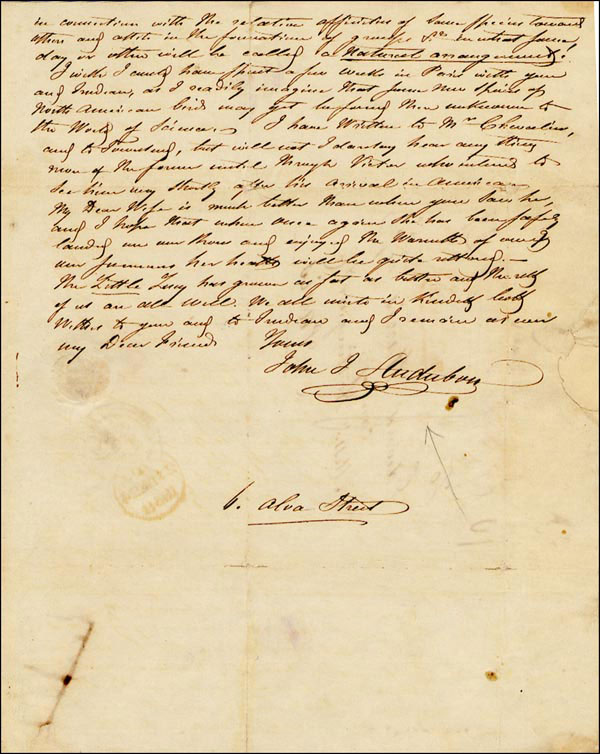 in connection with the relative affinities of some species toward
others and assist in the formation of groups &c. in what some
day or other will be called a Natural arrangement!
I wish I could have spent a few weeks in Paris with you
and Trudeau, as I readily imagine that some new species of
North American bird may yet be found there unknown to
the World of Science. I have written to Mr Chevalier,
and to Townsend, but will not I daresay hear any thing
more of the former until through Victor who intends to
see him very shortly after his arrival in America
My Dear Wife is much better than when you saw her,
and I hope that when once again she has been safely
landed on our shores and enjoyed the Warmth of one of
our summers her health will be quite restored.—
The Little Lucy has grown as fast as butter and the rest
of us are all well. We all unite in kindest best
Wishes to you and to Trudeau and I remain as ever
my Dear Friend Yours
John J Audubon
6. Alva Street